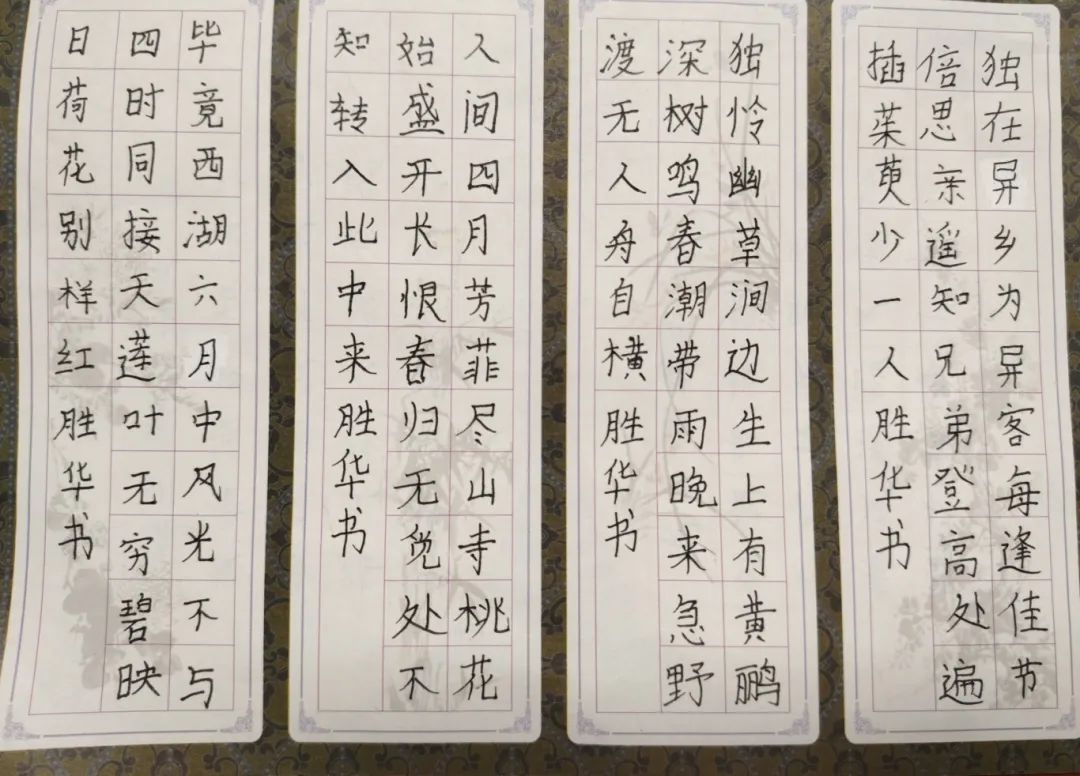 独在异乡为异客每逢佳节
倍思亲遥知兄弟登高处遍
插茱萸少一人胜华书
独怜幽草涧边生上有黄鹂
深树鸣春潮带雨晚来急野
渡无人舟自横胜华书
人间四月芳菲尽山寺桃花
始盛开长恨春归无觅处不
知转入此中来胜华书
毕竟西湖六月中风光不与
四时同接天莲叶无穷碧映
日荷花别样红胜华书